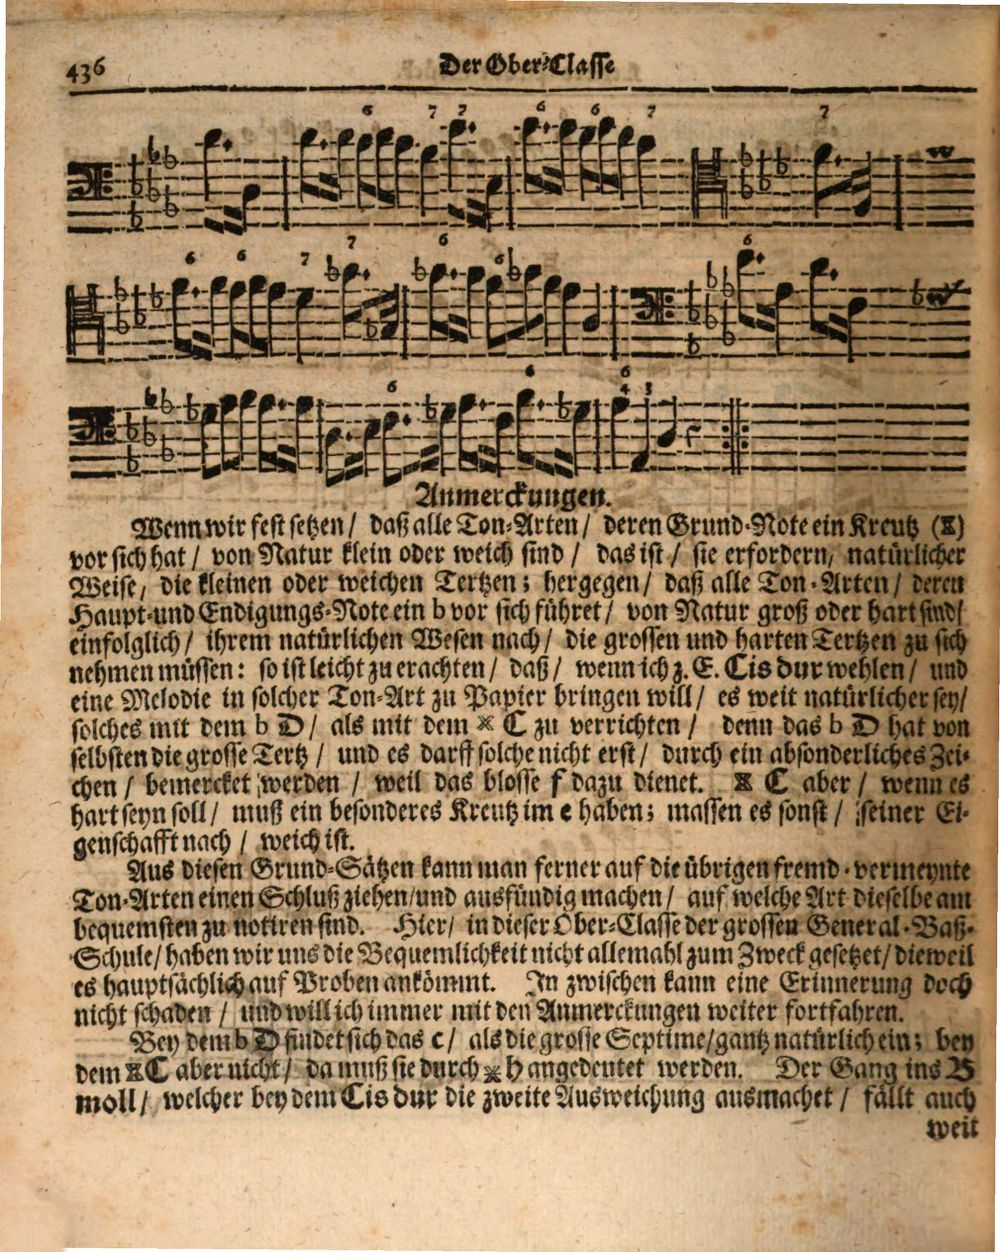 436
Der Ober-Classe
6 7 7 6 6 7 7
6 6 7 7 6 6 6
6 6 6
4 3
Anmerckungen.
Wenn wir fest setzen / daß alle Ton-Arten / deren Grund-Note ein Kreutz (※)
vor sich hat / von Natur klein oder weich sind / das ist / sie erfordern, natürlicher
Weise, die kleinen oder weichen Tertzen; hergegen / daß alle Ton-Arten / deren
Haupt-und Endigungs-Note ein b vor sich führet / von Natur groß oder hart sind/
einfolglich / ihrem natürlichen Wesen nach / die grossen und harten Tertzen zu sich
nehmen müssen: so ist leicht zu erachten / daß / wenn ich z. E. Cis dur wehlen / und
eine Melodie in solcher Ton-Art zu Papier bringen will / es weit natürlicher sey/
solches mit dem b D / als mit dem ※ C zu verrichten / denn das b D hat von
selbsten die grosse Tertz / und es darff solche nicht erst / durch ein absonderliches Zei-
chen / bemercket werden / weil das blosse f dazu dienet. ※ C aber / wenn es
hart seyn soll / muß ein besonderes Kreutz im e haben; massen es sonst / seiner Ei-
genschafft nach / weich ist.
Aus diesen Grund-Sätzen kann man ferner auf die übrigen fremd-vermeynte
Ton-Arten einen Schluß ziehen/und ausfündig machen / auf welche Art dieselbe am
bequemsten zu notiren sind. Hier/ in dieser Ober-Classe der grossen General-Baß-
Schule/ haben wir uns die Bequemlichkeit nicht allemahl zum Zweck gesetzet/ dieweil
es hauptsächlich auf Proben ankömmt. In zwischen kann eine Erinnerung doch
nicht schaden / und will ich immer mit den Anmerckungen weiter fortfahren.
Bey dem b D findet sich das c / als die grosse Septime/gantz natürlich ein; bey
dem ※C aber nicht / da muß sie durch ※ H angedeutet werden. Der Gang ins B
moll / welcher bey dem Cis dur die zweite Ausweichung ausmachet / fällt auch
weit